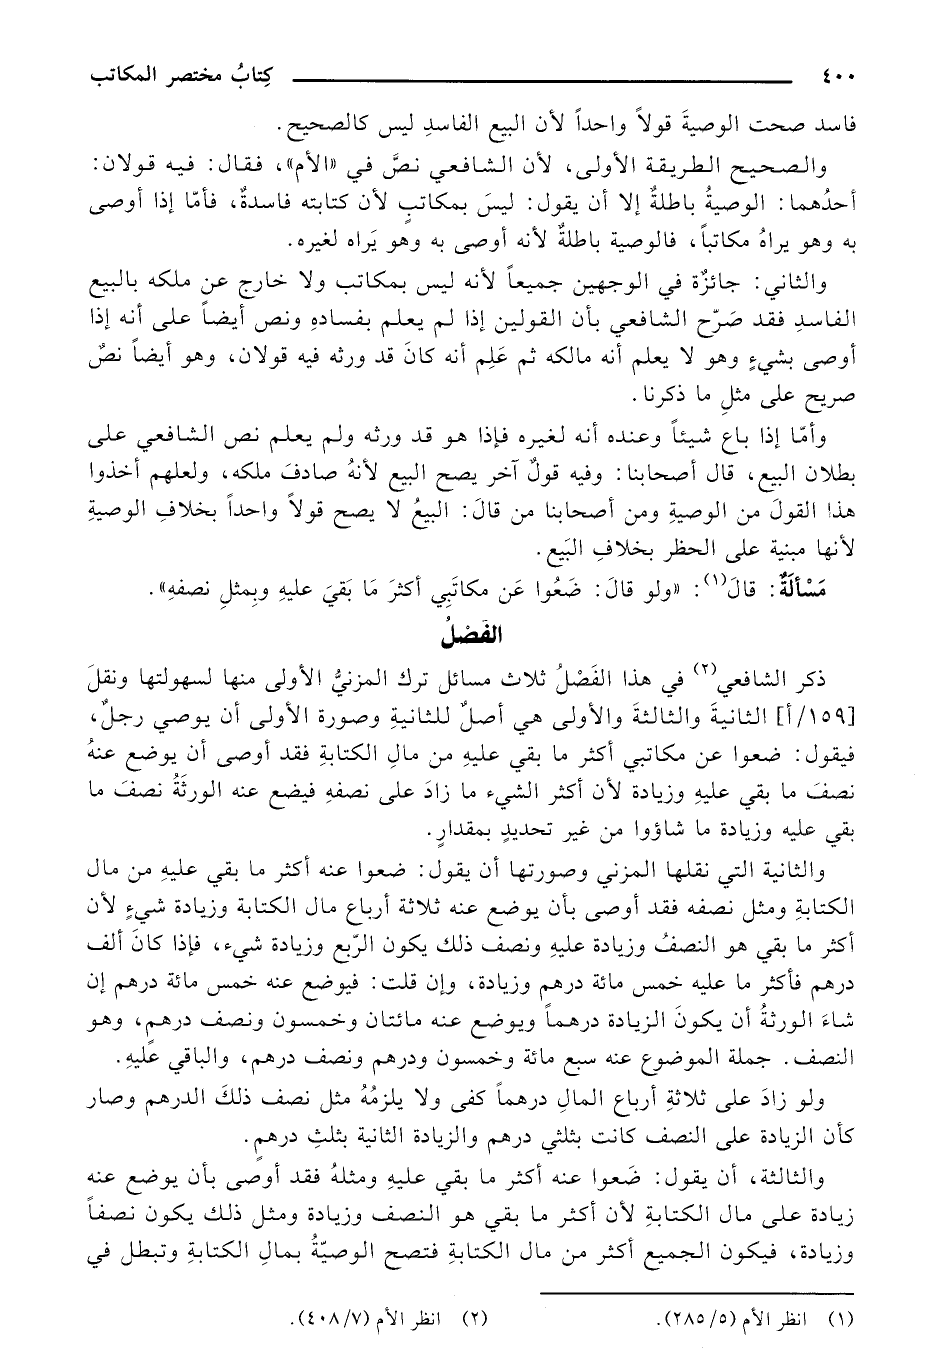 ٤٠٠ كِتابُ مختصر المكاتب
فاسد صحت الوصيةَ قولاً واحداً لأن البيع الفاسدِ ليس كالصحيح.
والصحيح الطريقة الأولى، لأن الشافعي نصَّ في «الأم»، فقال: فيه قولان:
أحدُهما: الوصيةُ باطلةٌ إلا أن يقول: ليسَ بمكاتبٍ لأن كتابته فاسدةٌ، فأمّا إذا أوصى
به وهو يراهُ مكاتباً، فالوصية باطلةٌ لأنه أوصى به وهو يَراه لغيره.
والثاني: جائزٌة في الوجهين جميعاً لأنه ليس بمكاتب ولا خارج عن ملكه بالبيع
الفاسدِ فقد صَرّح الشافعي بأن القولين إذا لم يعلم بفسادهِ ونص أيضاً على أنه إذا
أوصى بشيءٍ وهو لا يعلم أنه مالكه ثم عَلِم أنه كانَ قد ورثه فيه قولان، وهو أيضاً نصٌ
صريح على مثلِ ما ذكرنا.
وأمّا إذا باع شيئاً وعنده أنه لغيره فإذا هو قد ورثه ولم يعلم نص الشافعي على
بطلان البيع، قال أصحابنا: وفيه قولٌ آخر يصح البيع لأنهُ صادفَ ملكه، ولعلهم أخذوا
هذا القولَ من الوصيةِ ومن أصحابنا من قالَ: البيعُ لا يصح قولاً واحداً بخلافِ الوصيةِ
لأنها مبنية على الحظر بخلافِ البَيع.
مَسْألَةٌ: قالَ(١): «ولو قالَ: ضَعُوا عَن مكاتَبِي أكثرَ مَا بَقيَ عليهِ وبِمثلِ نصفهِ».
الفَصْلُ
ذكر الشافعي(٢) في هذا الفَصْلُ ثلاث مسائل ترك المزنيُّ الأولى منها لسهولتها ونقلَ
[١٥٩/أ] الثانيةَ والثالثةَ والأولى هي أصلٌ للثانيةِ وصورة الأولى أن يوصي رجلٌ،
فيقول: ضعوا عن مكاتبي أكثر ما بقي عليهِ من مالِ الكتابةِ فقد أوصى أن يوضع عنهُ
نصفَ ما بقي عليهِ وزيادة لأن أكثر الشيء ما زادَ على نصفهِ فيضع عنه الورثَةُ نصفَ ما
بقي عليه وزيادة ما شاؤوا من غير تحديدٍ بمقدارٍ.
والثانية التي نقلها المزني وصورتها أن يقول: ضعوا عنه أكثر ما بقي عليهِ من مال
الكتابةِ ومثل نصفه فقد أوصى بأن يوضع عنه ثلاثة أرباع مال الكتابة وزيادة شيءٍ لأن
أكثر ما بقي هو النصفُ وزيادة عليهِ ونصف ذلك يكون الرّبع وزيادة شيء، فإذا كانَ ألف
درهم فأكثر ما عليه خمس مائة درهم وزيادة، وإن قلت: فيوضع عنه خمس مائة درهم إن
شاءَ الورثةُ أن يكونَ الزيادة درهماً ويوضع عنه مائتان وخمسون ونصف درهم، وهو
النصف. جملة الموضوع عنه سبع مائة وخمسون ودرهم ونصف درهم، والباقي عليهِ.
ولو زادَ على ثلاثةِ أرباع المالِ درهماً كفى ولا يلزمُهُ مثل نصف ذلكَ الدرهم وصار
كأن الزيادة على النصف كانت بثلثي درهم والزيادة الثانية بثلثِ درهمٍ.
والثالثة، أن يقول: ضَعوا عنه أكثر ما بقي عليهِ ومثلهُ فقد أوصَى بأن يوضع عنه
زيادة على مال الكتابةِ لأن أكثر ما بقي هو النصف وزيادة ومثل ذلك يكون نصفاً
وزيادة، فيكون الجميع أكثر من مال الكتابةِ فتصح الوصيّةُ بمالِ الكتابةِ وتبطل في
(١) انظر الأم (٢٨٥/٥).
(٢) انظر الأم (٤٠٨/٧).